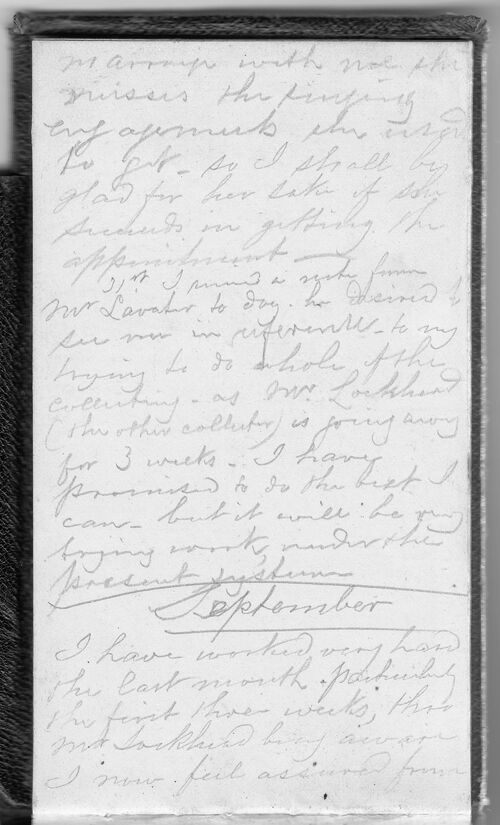 marriage with me she
misses the singing
engagements she used
to get - so I shall be
glad for her sake if she
succeeds in getting the
appointment
31st I received a note from
Mr Lavater to day. he desired to
see me in reference - to my
trying to do whole of the
collecting - as Mr Lockhead
(the other collector) is going away
for 3 weeks - I have
promised to do the best I
can - but it will be very
trying work, under the
present system
September
I have worked very hard
the last month. particularly
the first three weeks, thro
Mr Lockhead being away
I now feel assured from